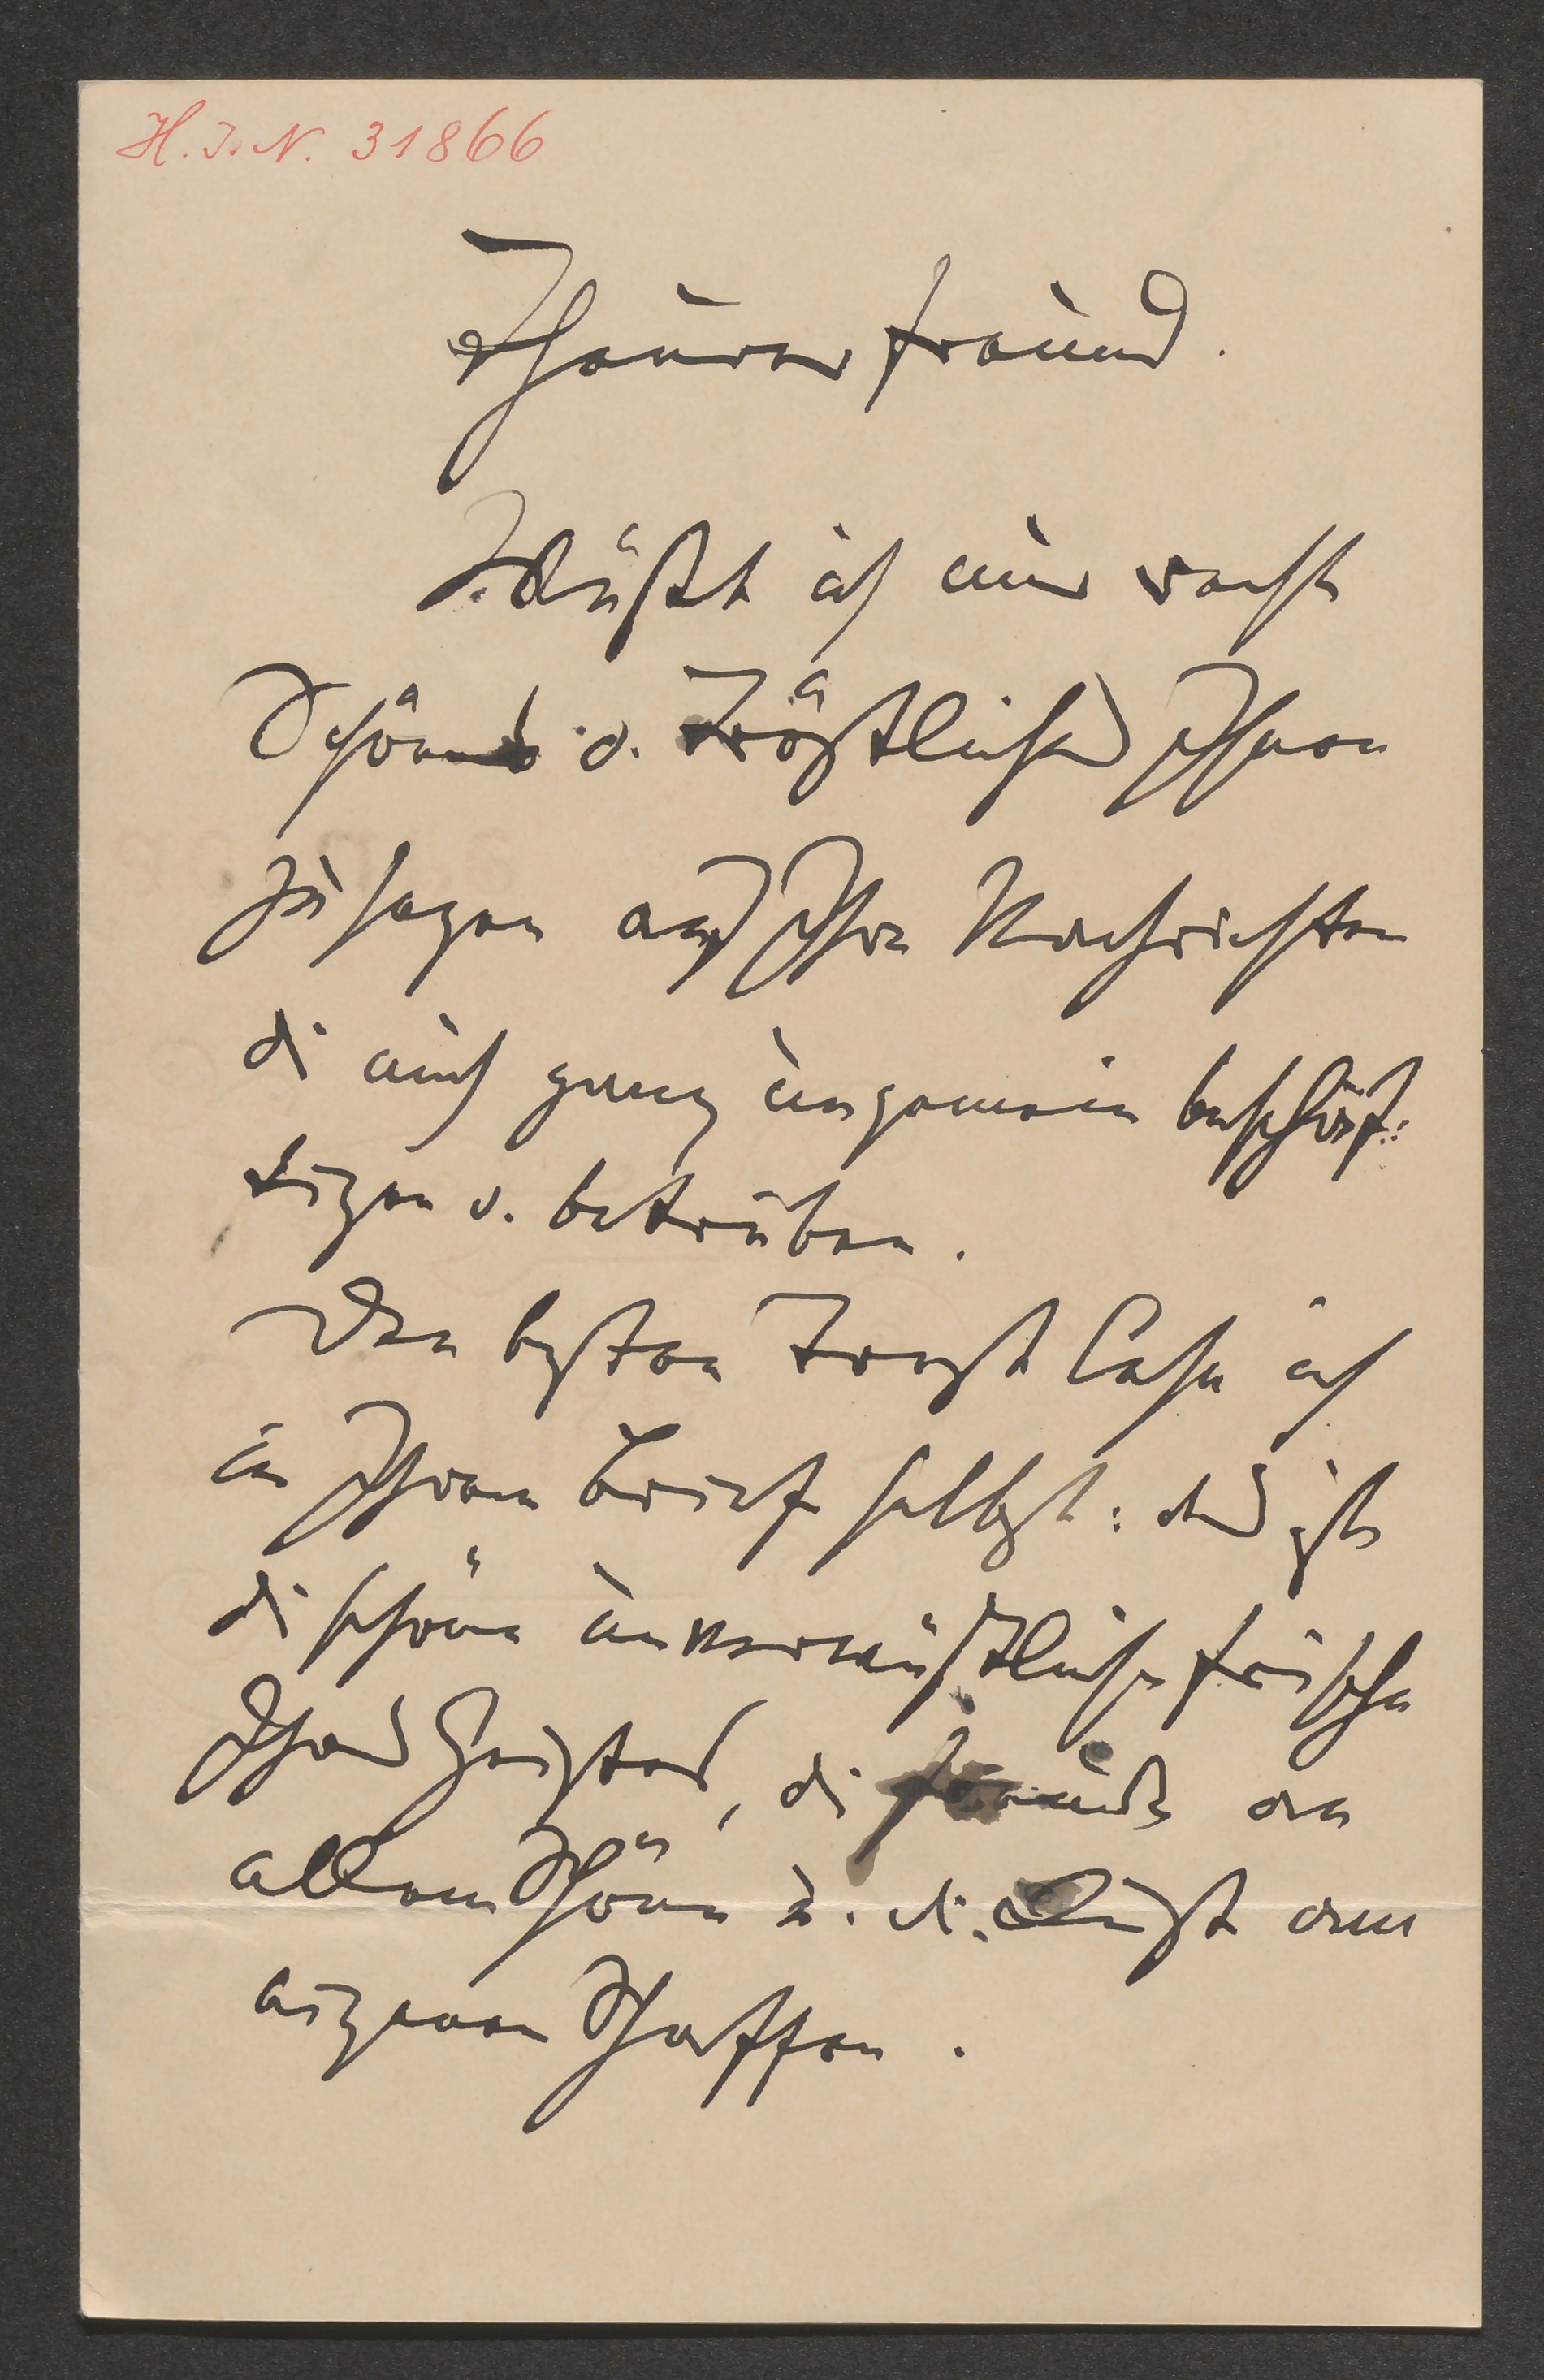 H. I. N. 31866
Theurer Freund.
Wüßte ich nur recht
Schönes u. Tröstliches Ihnen
zu sagen auf Ihre Nachrichten
die mich ganz ungemein beschäf-
tigen u. betrüben.
Den besten Trost lese ich
in Ihrem Briefe selbst: das ist
die schöne unverwüstliche Frische
Ihres Geistes, die Freude an
allem Schönen u. die Lust am
eigenen Schaffen.